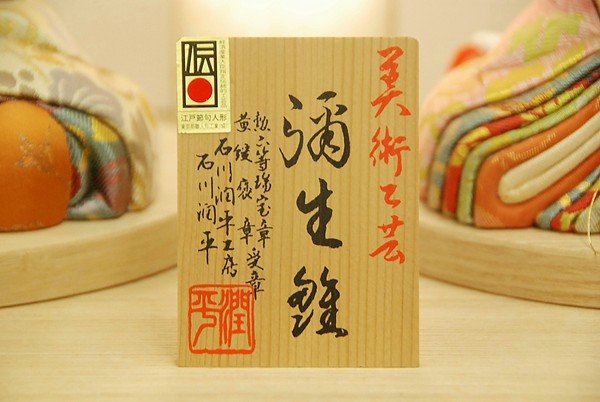 美術工芸
彌生雛
勲六等瑞宝章受章
黄綬褒章
石川潤平工房
石川潤平
潤平
伝
江戸節句人形